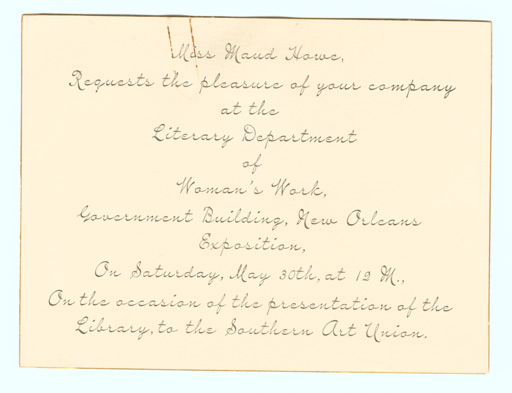 Miss Maud Howe,
Requests the pleasure of your company
at the
Literary Department
of
Woman's Work,
Government Building, New Orleans
Exposition,
On Saturday, May 30th, at 12 M.,
On the occasion of the presentation of the
Library, to the Southern Art Union.